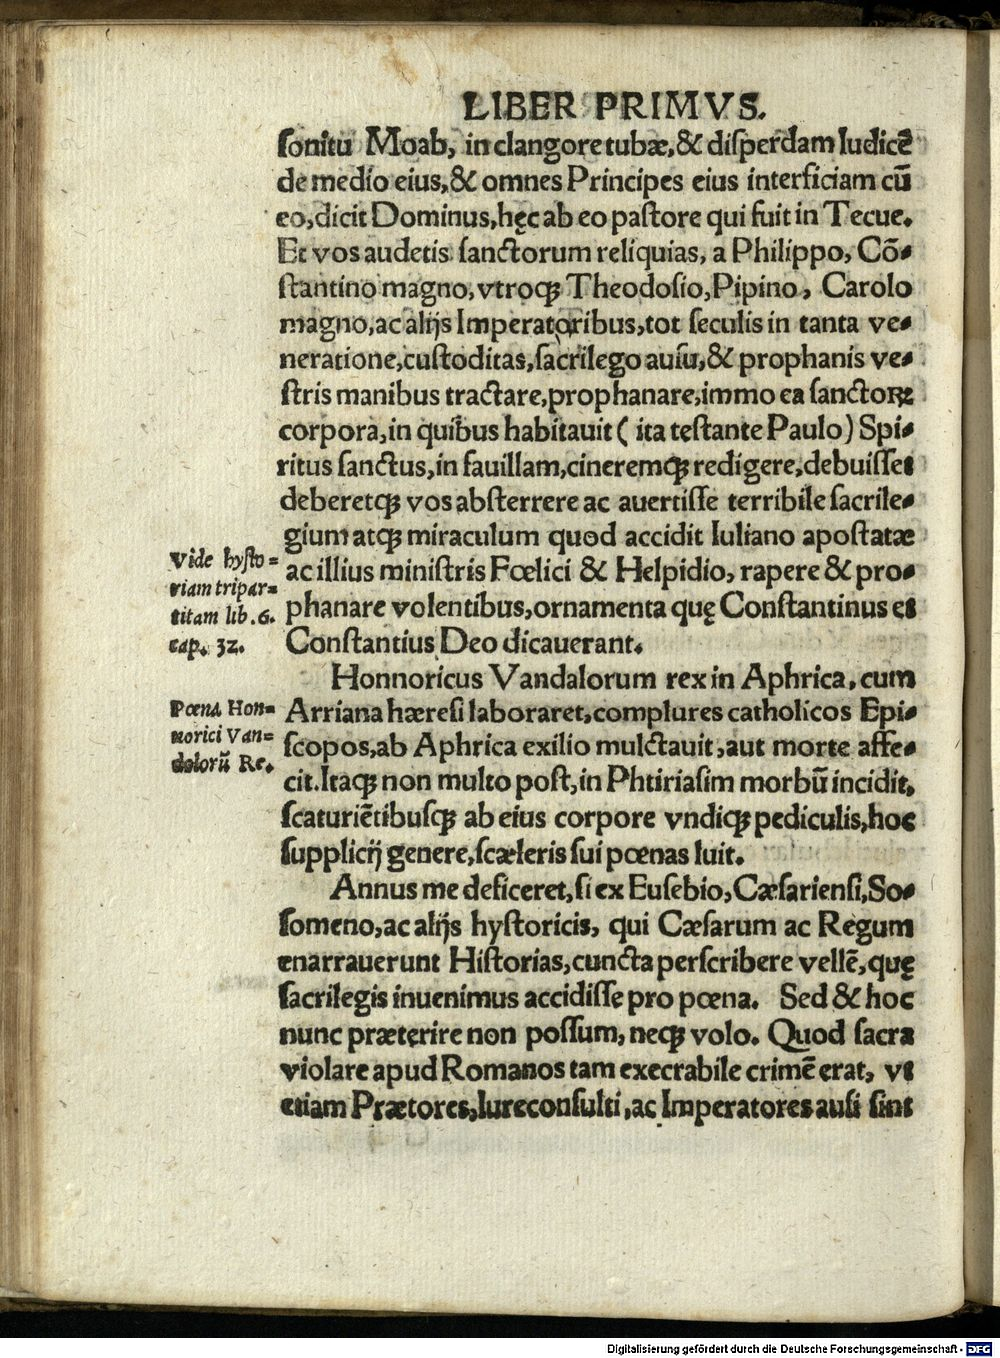 LIBER PRIMVS.
ſonitu Moab, in clangore tubæ,& diſperdam Iudicē
de medio eius,& omnes Principes eius interficiam cū
eo,dicit Dominus,hęc ab eo paſtore qui fuit in Tecue.
Et vos audetis ſanctorum reliquias, a Philippo, Cō⸗
ſtantino magno, vtroqꝫ Theodoſio, Pipino, Carolo
magno,ac alijs Imperatoribus,tot ſeculis in tanta ve⸗
neratione,cuſtoditas,ſacrilego auſu,& prophanis ve⸗
ſtris manibus tractare,prophanare,immo ea ſanctoꝝ
corpora,in quibus habitauit ( ita teſtante Paulo) Spi⸗
ritus ſanctus,in fauillam,cineremqꝫ redigere,debuiſſet
deberetqꝫ vos abſterrere ac auertiſſe terribile ſacrile⸗
gium atqꝫ miraculum quod accidit Iuliano apoſtatæ
ac illius miniſtris Fœlici & Helpidio, rapere & pro⸗
phanare volentibus,ornamenta quę Conſtantinus et
Conſtantius Deo dicauerant.
Vide hyſto⸗
riam tripar⸗
titam lib. 6.
cap. 32.
Honnoricus Vandalorum rex in Aphrica, cum
Arriana hæreſi laboraret,complures catholicos Epi⸗
ſcopos,ab Aphrica exilio mulctauit,aut morte affe⸗
cit. Itaqꝫ non multo poſt,in Phtiriaſim morbū incidit,
ſcaturiētibuſqꝫ ab eius corpore vndiqꝫ pediculis,hoc
ſupplicij genere,ſcæleris ſui pœnas luit.
Pœna Hon⸗
norici Van⸗
dalorū Re.
Annus me deficeret,ſi ex Euſebio,Cæſarienſi,So⸗
ſomeno,ac alijs hyſtoricis, qui Cæſarum ac Regum
enarrauerunt Hiſtorias,cuncta perſcribere vellē,quę
ſacrilegis inuenimus accidiſſe pro pœna. Sed & hoc
nunc præterire non poſſum, neqꝫ volo. Quod ſacra
violare apud Romanos tam execrabile crimē erat, vt
etiam Prætores,Iureconſulti,ac Imperatores auſi ſint
Digitalisierung gefördert durch die Deutsche Forschungsgemeinschaft - DFG